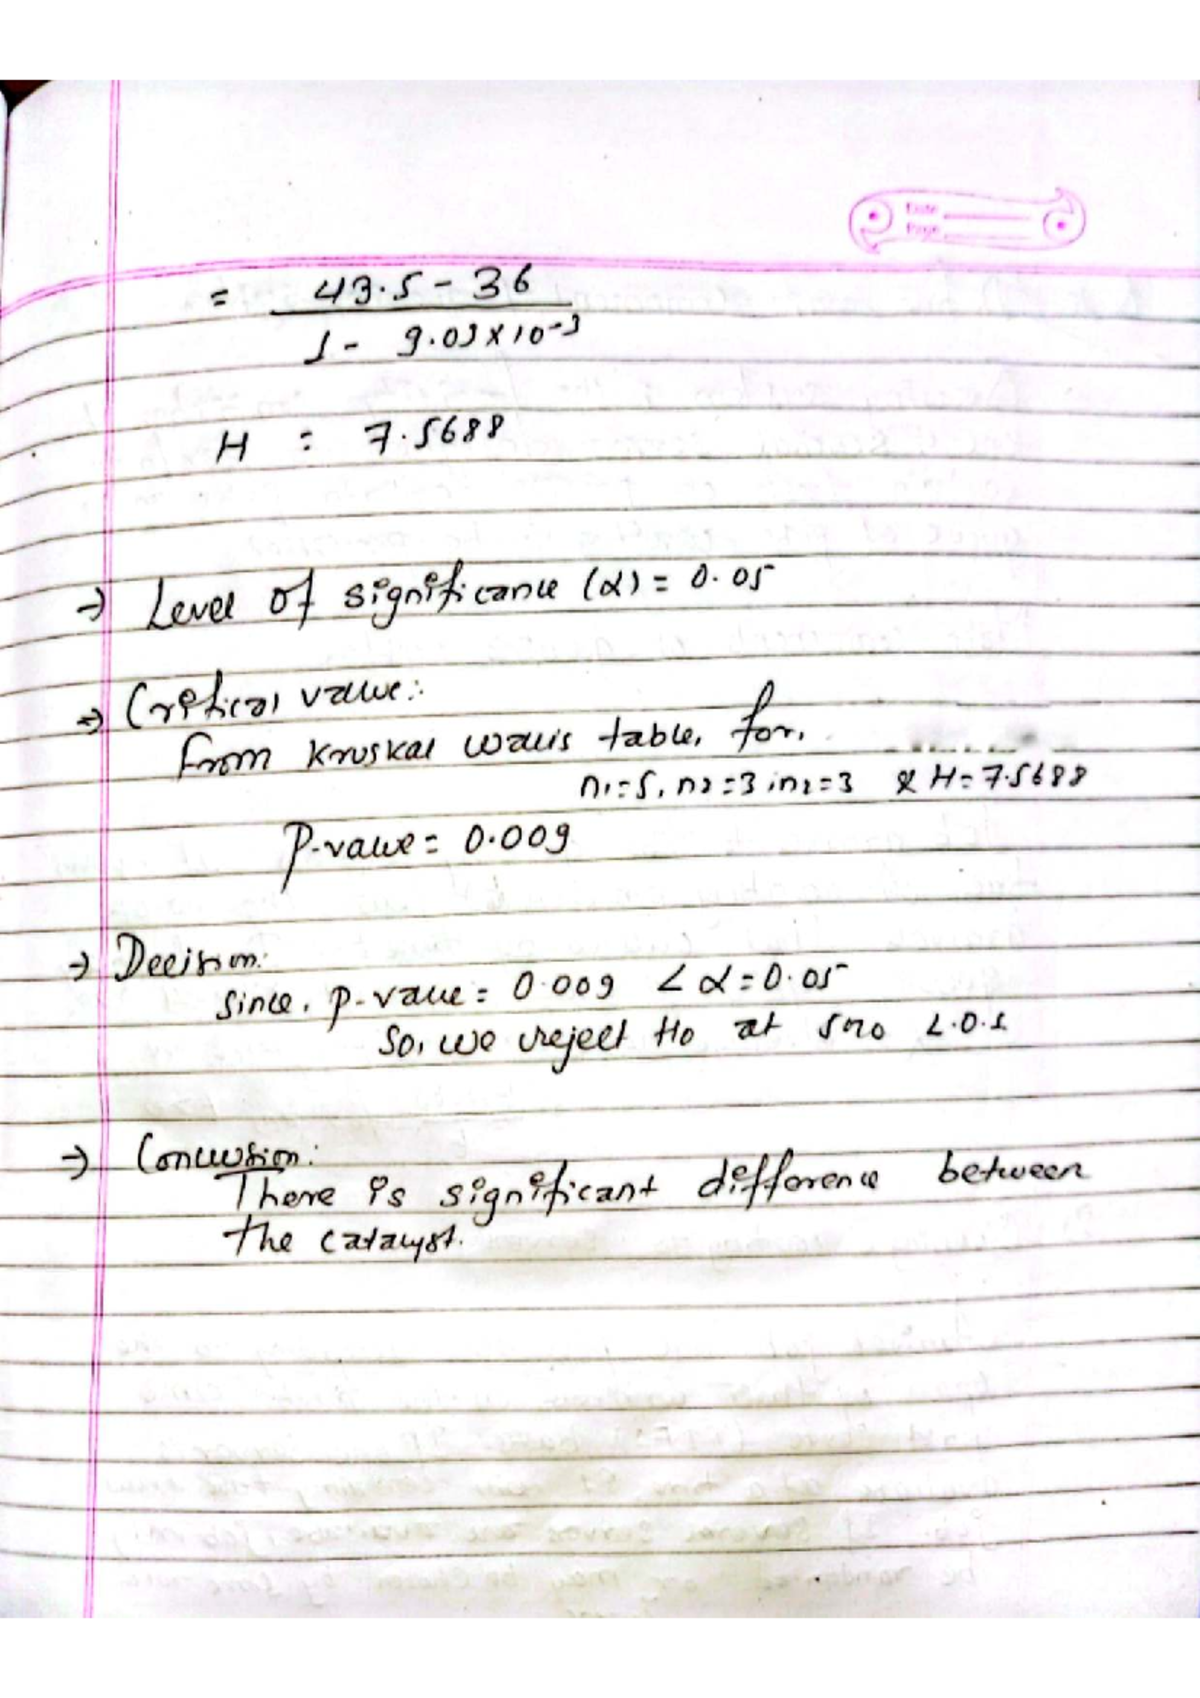 Date
Page
= 43.5 - 36
1 - 9.09 × 10-3
H = 7.5688
→ Level of significance (α) = 0.05
→ Critical value:
from Kruskal wallis table, for,
n1=5, n2=3, n2=3 & H=7.5688
P-value = 0.009
→ Decision:
since, p-value = 0.009 < α = 0.05
so, we reject H0 at 5% L.O.S
→ Conclusion:
There is significant difference between
the catalyst.